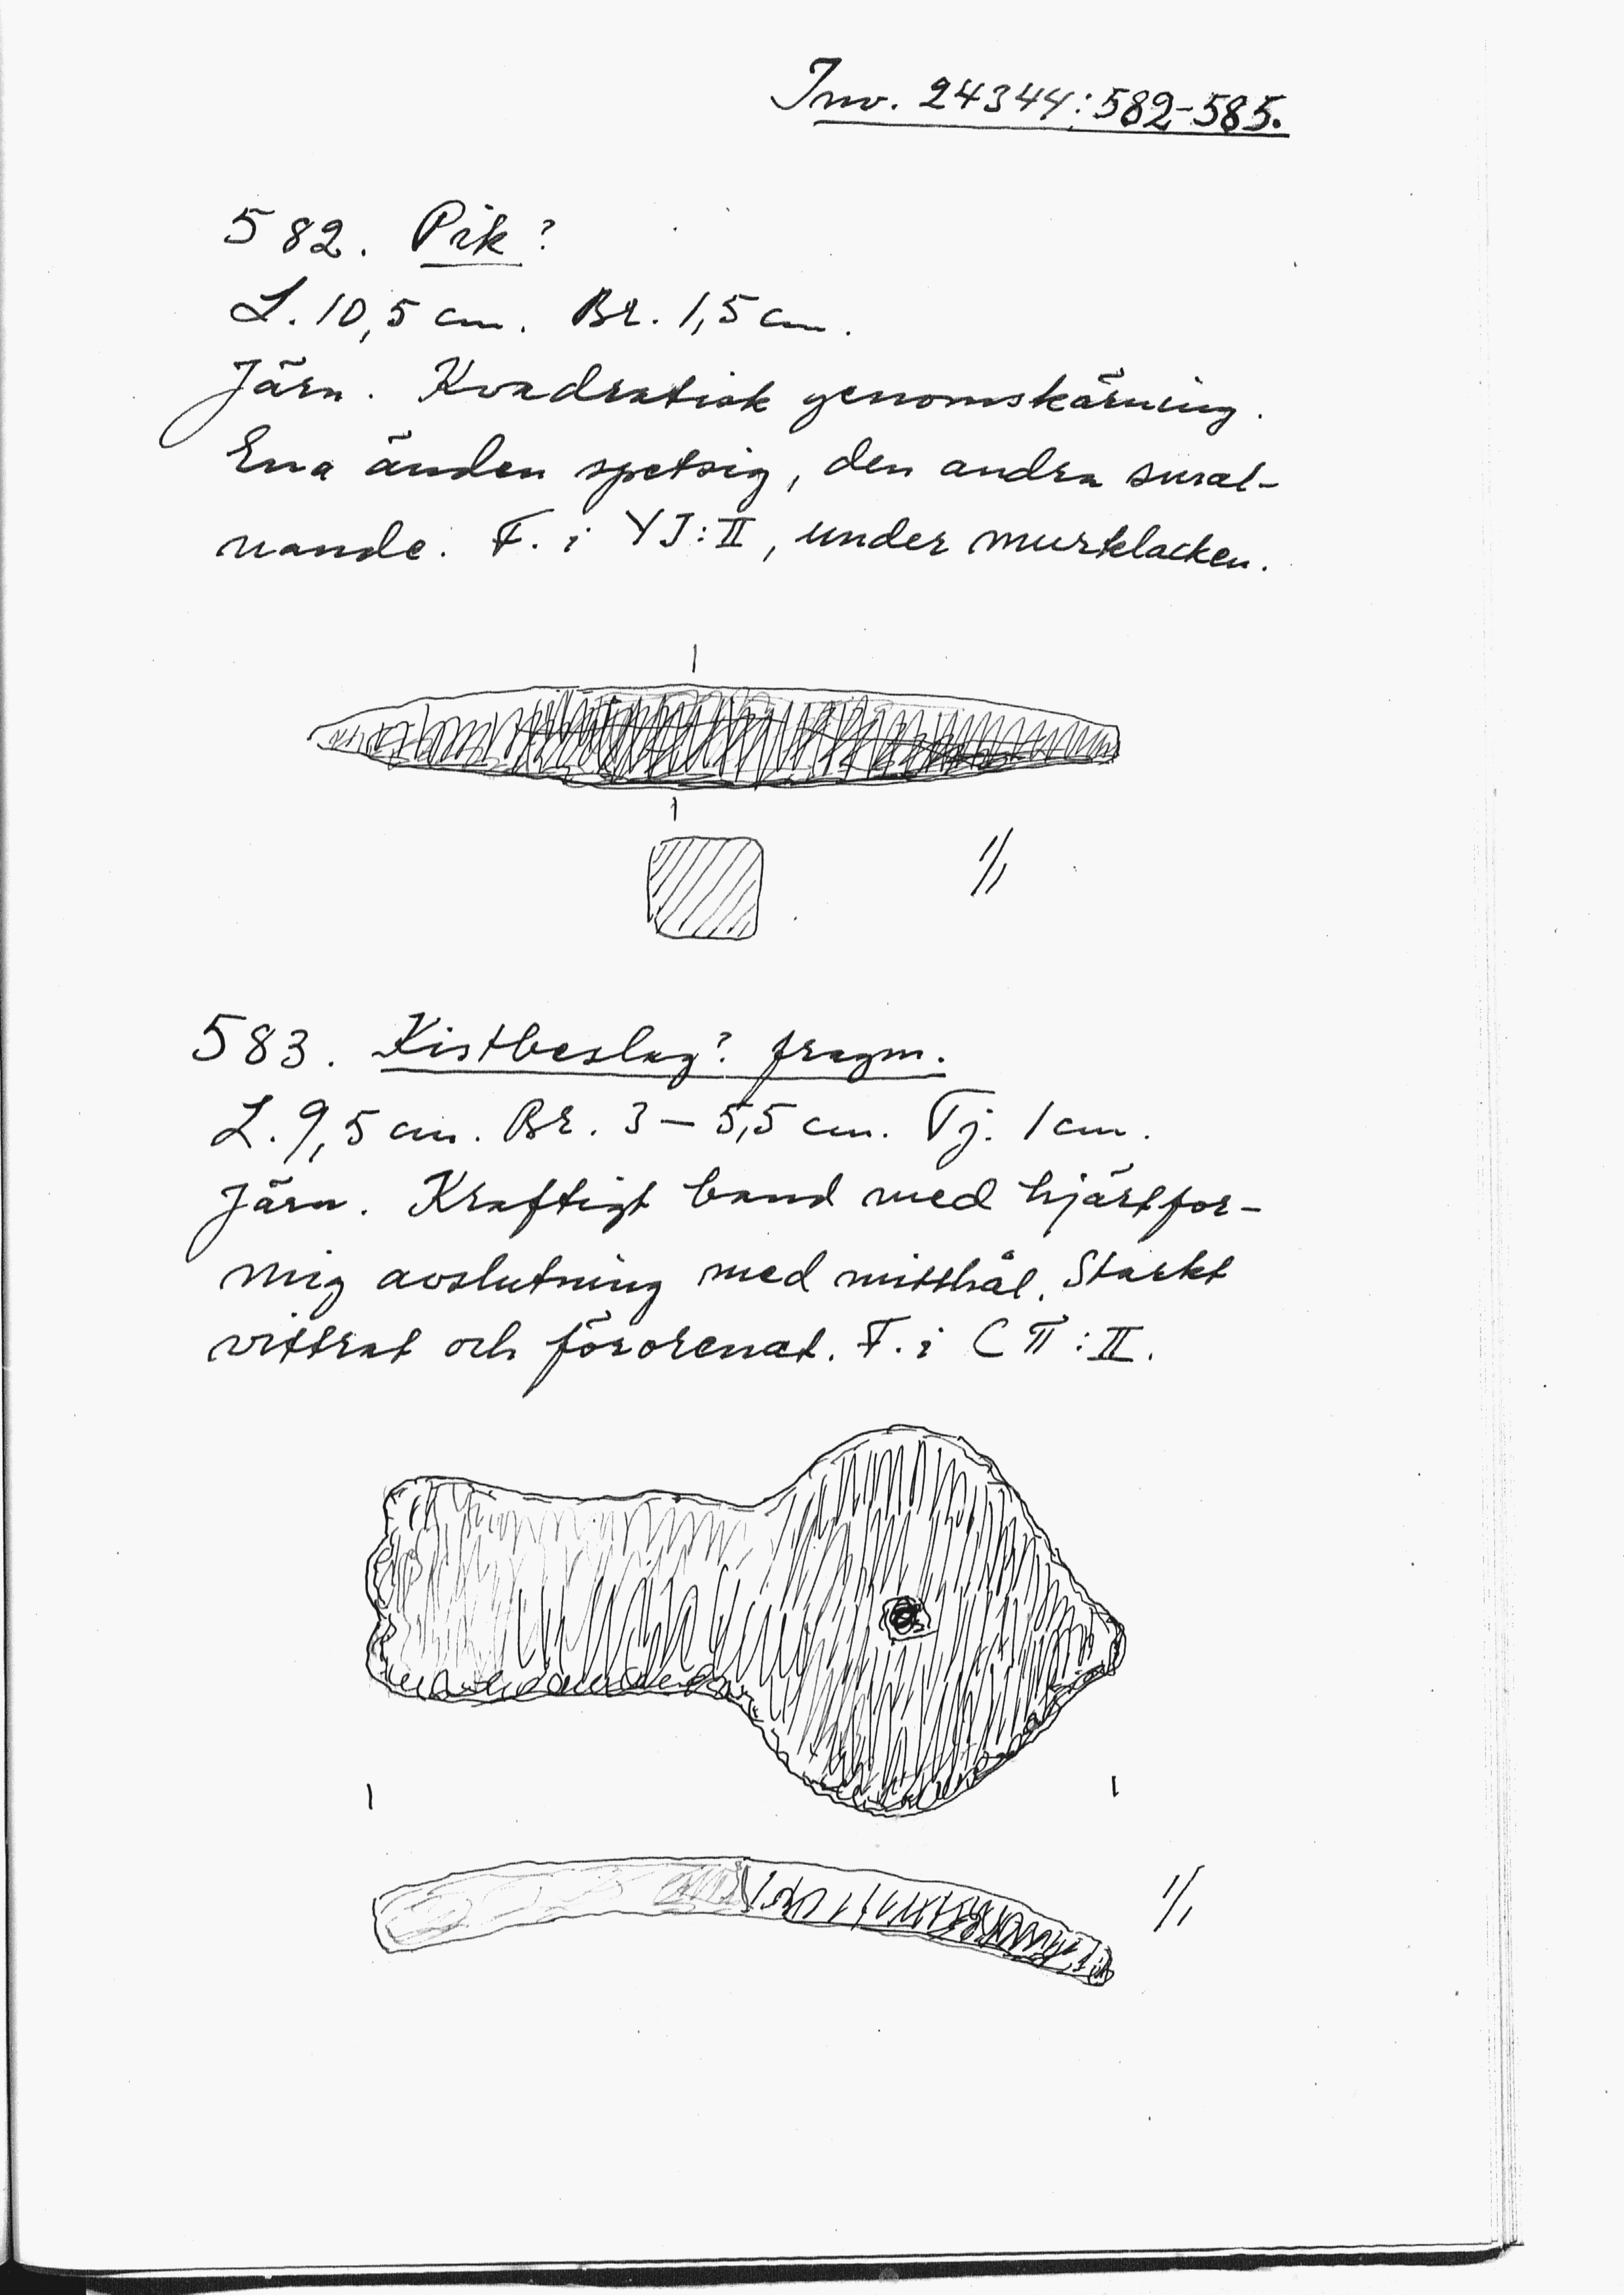 Inv. 24344:582-585.
582. Pik?
L. 10,5 cm. Br. 1,5 cm.
Järn. Kvadratisk genomskärning.
Ena änden spetsig, den andra smal-
nande. F. i YJ:II, under murklacken.
1/1
583. Kistbeslag? fragm.
L. 9,5 cm. Br. 3 – 5,5 cm. Tj. 1 cm.
Järn. Kraftigt band med hjärtfor-
mig avslutning med mitthål. Starkt
vittrat och förorenat. F. i CΠ:II.
1/1